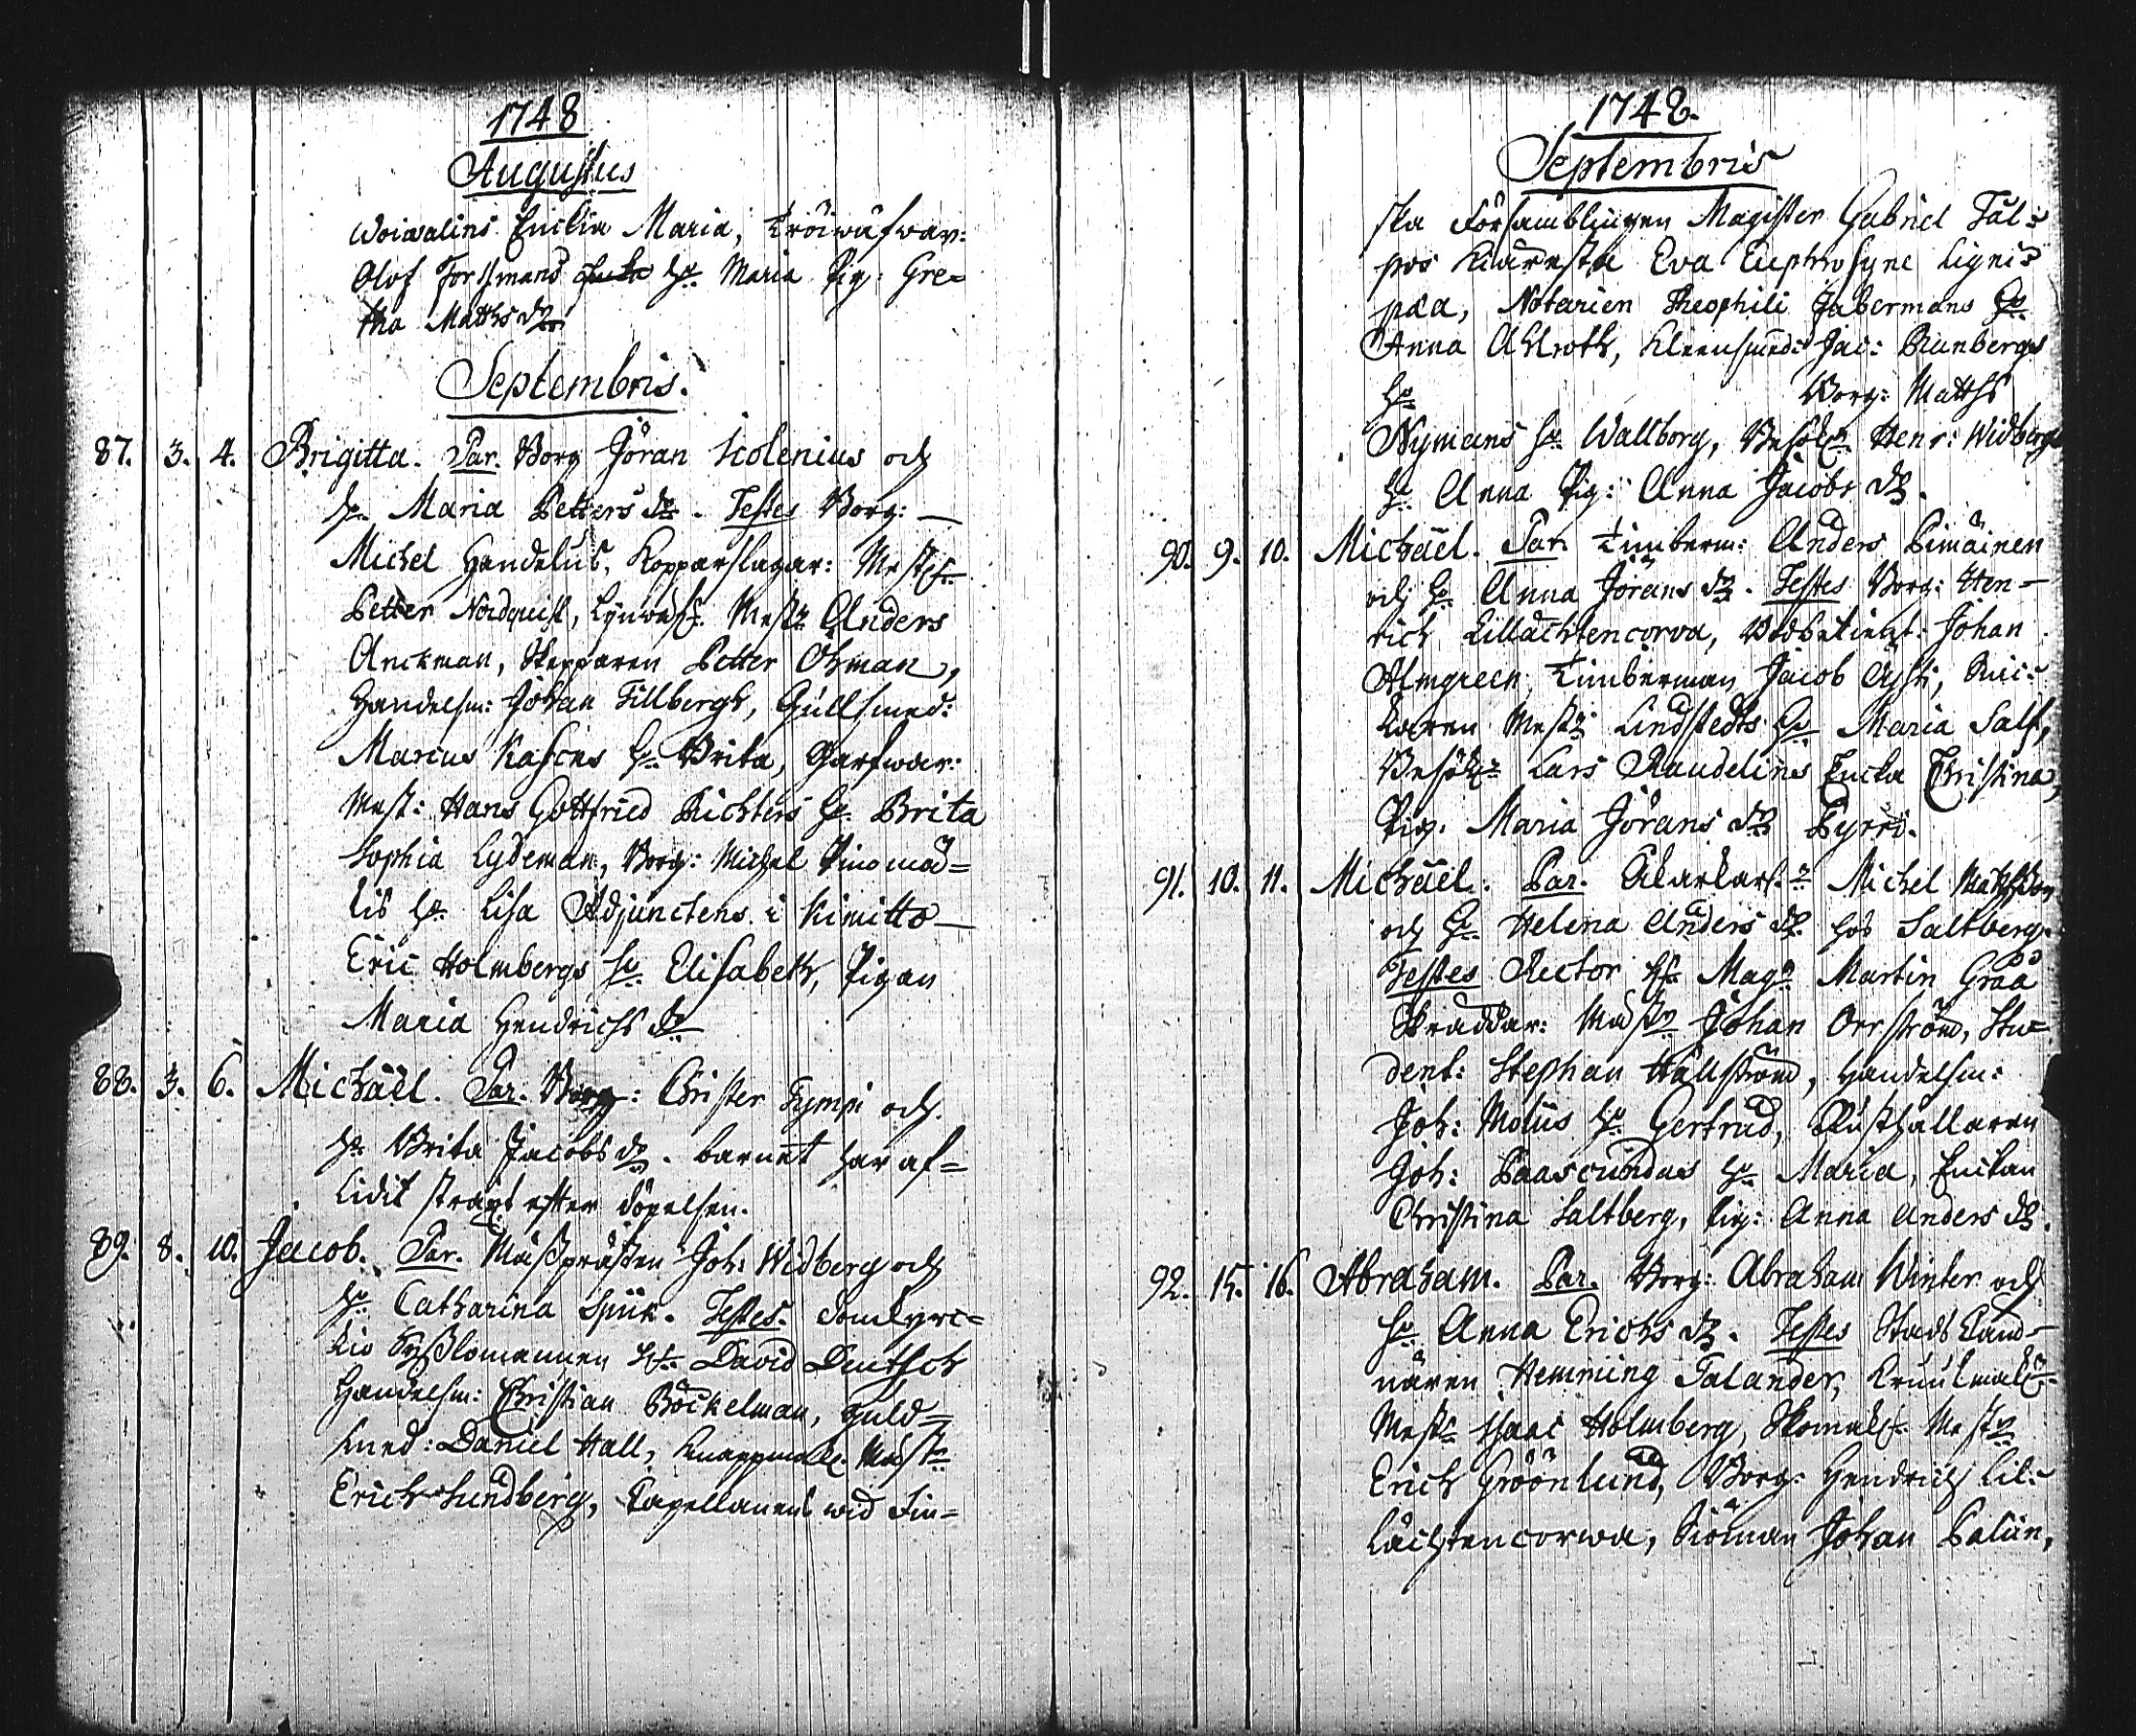 1748
Augustus
Woiwalins Enckia Maria, Tröiwäfwar:
Olof Forssmans Hu. Maria Pig: Gre=
tha Matths dr
Septembris.
87. 3. 4. Brigitta. Par. Borg Jöran Scolenius och
hu. Maria Petters dr. Testes Borg: —
Michel Handelus, Kopparslagar: Mest.
Petter Nordquist, Mestr Anders
Anckman, Skepparen Petter Öhman,
Handelsm: Johan Tillbergh, Gullsmed:
Marcus Kasens hu. Brita, Garfwar:
Mest: Hans Gottfried Richters hu. Brita
Sophia Lydeman, Borg: Michel Pinomäd=
kis hu. Lisa Adjunctens i Kimitto —
Eric Holmbergs hu. Elisabeth, Pigan
Maria Hendrichs dr
88. 3. 6. Michaël. Par. Borg: Christer Tympi och
hu. Brita Jacobs dr. barnet har af=
lidit straxt efter döpelsen.
89. 8. 10. Jacob. Par. Mässprästen Joh: Widberg och
hu. Catharina Spiik. Testes. domkyrc=
kio Sysslomannen Hr. David Deutsch
Handelsm: Christian Böckelman, Guld=
smed: Daniel Hall, Knappmak. Mästr
Erich Sundberg, Capellanens wid Fin=
1748.
Septembris
ska Församblingen Magister Gabriel Tål=
pos Kiäresta Eva Euphrosyne Ligni=
paa, Notarien Theophili Gabermans hu.
Anna Ahlroth, Kleensmed: Jac: Runbergs
hu. Borg: Matths
Nymans hu. Wallborg, Besökr. Henr: Widbergs
hu. Anna Pig: Anna Jacobs dr.
90. 9. 10. Michaël. Par. Timberm: Anders Pimäinen
och hu. Anna Jörans dr. Testes Borg: Hen—
rich Lillächtencorva, Wedbetient: Johan
Almgreen, Timberman Jacob Ojsti, Snic=
karen Mestr Lindstedts hu. Maria Salf,
Besökr Lars Randelins Encka Christina,
Pig. Maria Jörans dr Pyrri.
91. 10. 11. Michaël. Par. Åkarkarl. Michel Mattsson
och hu. Helena Anders dr. hos Saltberg.
Testes Rector Hr. Magr Martin Graa
Skräddar: Mästr Johan Orrström, Stu=
dent: Stephan Hällström, Handelsm:
Joh: Molius hu. Gertrud, Rusthållaren
Joh: Paascundas hu. Maria, Enckan
Christina Saltberg, Pig: Anna Anders dr.
92. 15. 16. Abraham. Par. Borg: Abraham Winter och
hu. Anna Erichs dr. Testes Stads Cand—
nären Hemming Talander, Krukmak.
Mestr Isaac Holmberg, Skomak. Mestr
Erich Gröönlund, Borg: Hendrich Lil=
lächtencorwa, Siöman Johan Palin,